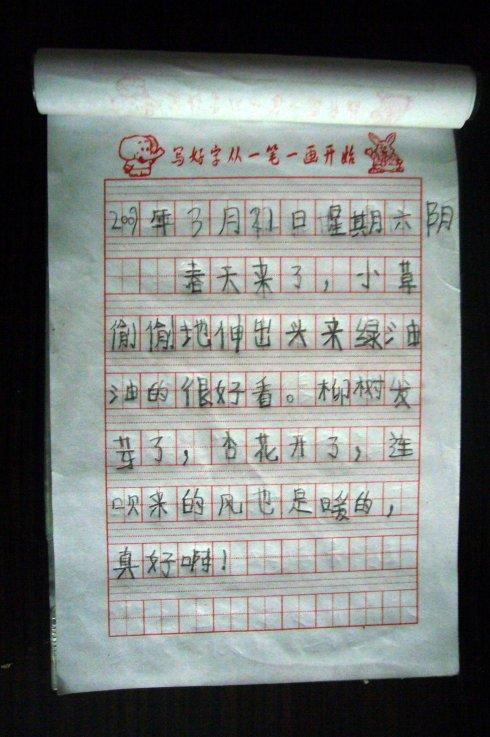 写好字从一笔一画开始
2009年3月21日星期六阴
春天来了，小草
偷偷地伸出头来绿油
油的很好看。柳树发
芽了，杏花开了，连
吹来的风也是暖的，
真好啊！